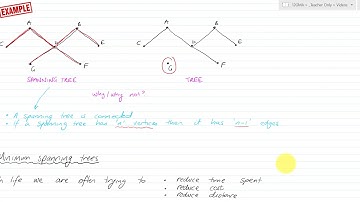 EXAMPLE
A B A B
C E C E
F F
G G
SPANNING TREE TREE
why/why not?
• A spanning tree is connected
• If a spanning tree has 'n' vertices then it has 'n-1' edges
Minimum spanning trees
n life we are often trying to • reduce time spent
• reduce cost
• reduce distance